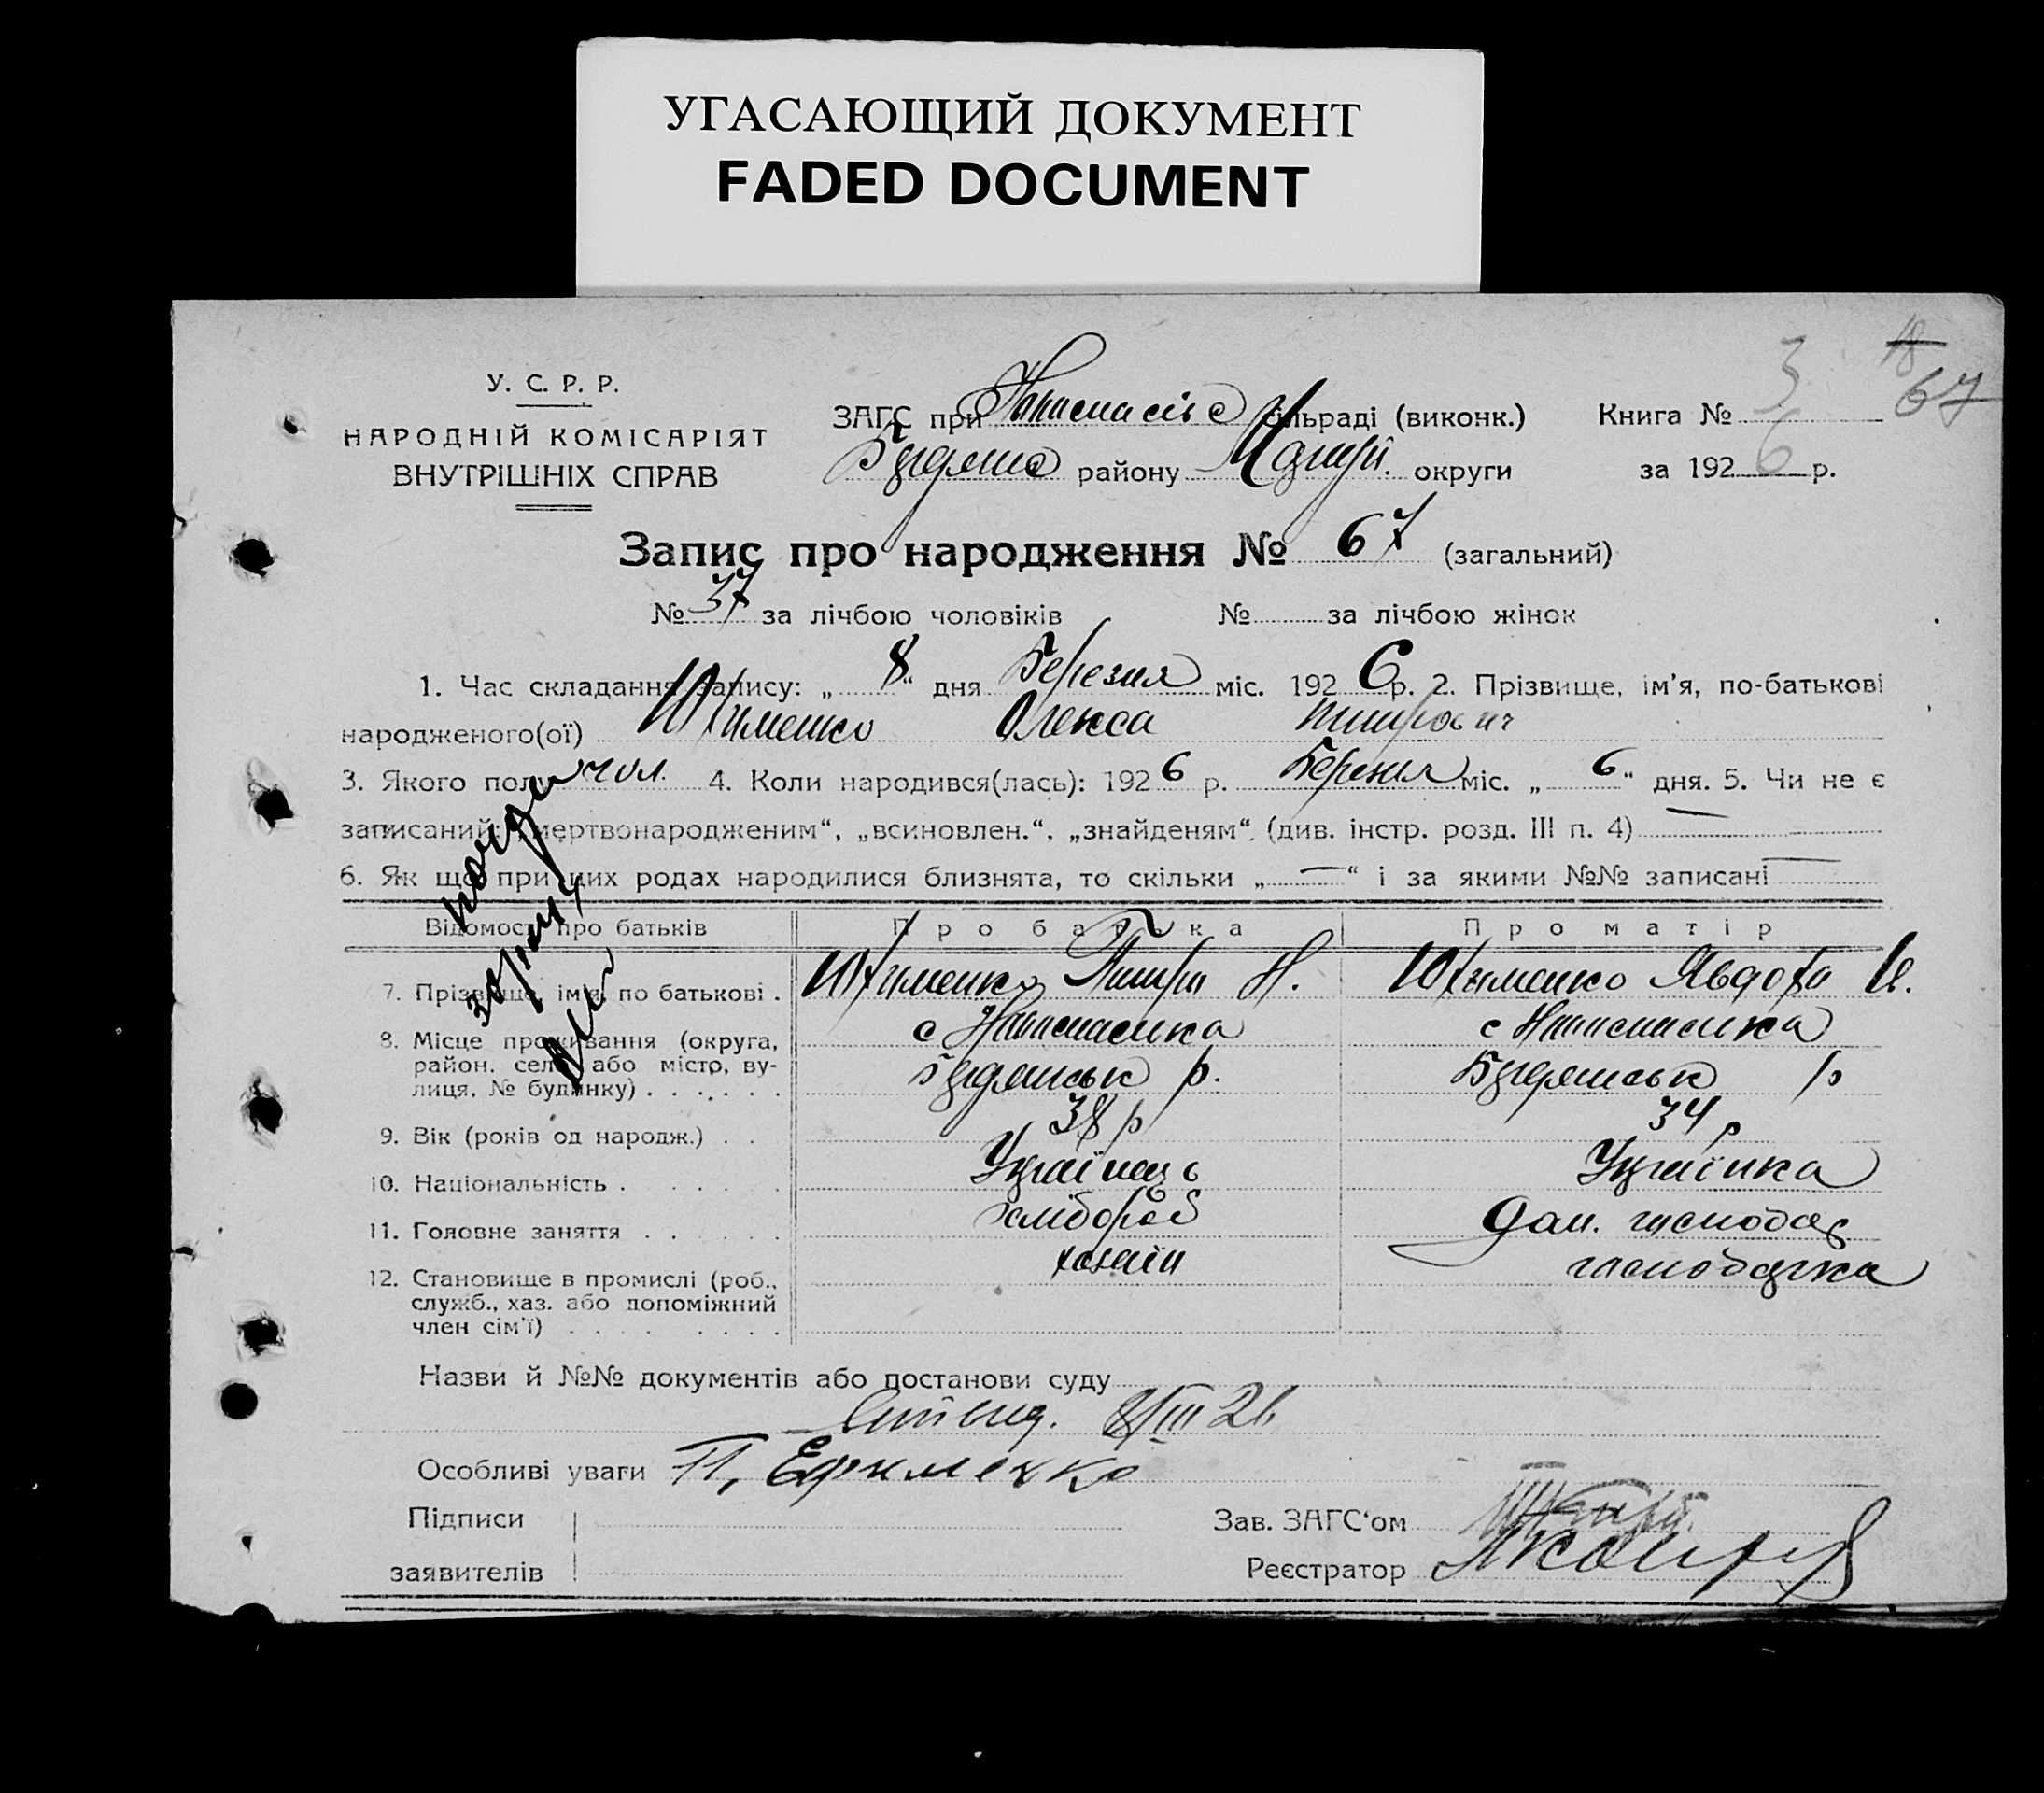 УГАСАЮЩИЙ ДОКУМЕНТ
FADED DOCUMENT
У. С. Р. Р.
НАРОДНІЙ КОМІСАРІЯТ
ВНУТРІШНІХ СПРАВ
ЗАГС при сільраді (виконк.)
району округи
Книга № 3
за 1926 р.
18
67
Запис про народження № 67 (загальний)
№ 37 за лічбою чоловіків № за лічбою жінок
1. Час складання запису: „ 8 “ дня Березня міс. 1926 р. 2. Прізвище, ім’я, по-батькові
народженого(ої) Юхименко Олекса
3. Якого полу чол. 4. Коли народився(лась): 1926 р. Березня міс. „ 6 “ дня. 5. Чи не є
записаний: „мертвонародженим“, „всиновлен.“, „знайденям“ (див. інстр. розд. III п. 4) —
6. Як що при цих родах народилися близнята, то скільки „ — “ і за якими №№ записані —
Відомості про батьків Про батька Про матір
7. Прізвище, ім’я, по батькові . Юхименко Н. Юхименко Явдоха
8. Місце проживання (округа, район, село або місто, вулиця, № будинку) . . . . . .
с с
р. р
9. Вік (років од народж.) . . 38 р 34 р
10. Національність . . . . . Українець Українка
11. Головне заняття . . . . . . хлібороб Дом. господар
12. Становище в промислі (роб., служб., хаз. або допоміжний член сім’ї) . . . . . . . . хозяїн господарка
Назви й №№ документів або постанови суду
8/III 26
Особливі уваги П. Ефименко
Підписи
заявителів
Зав. ЗАГС‘ом
Реєстратор